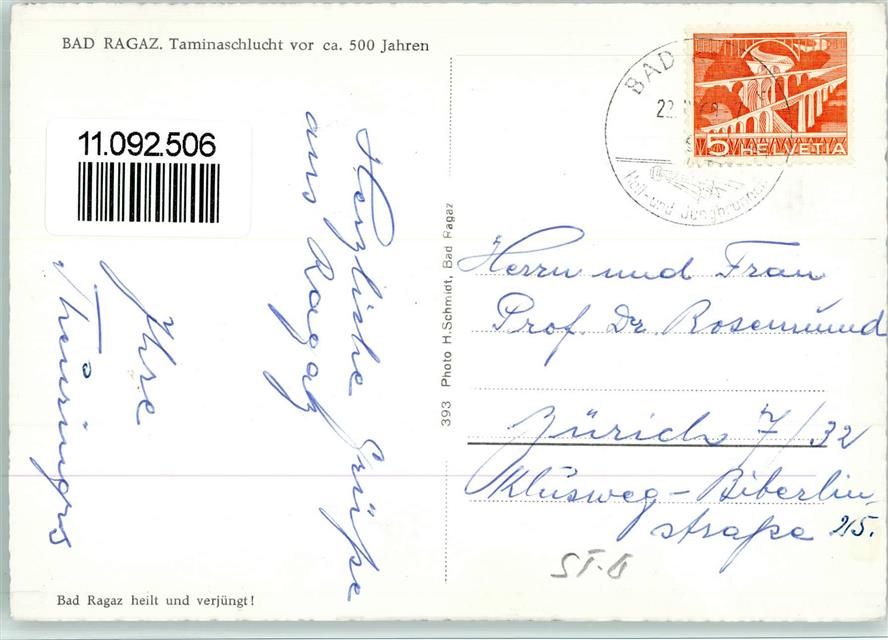 BAD RAGAZ. Taminaschlucht vor ca. 500 Jahren
11.092.506
Herzliche Grüße
aus Ragaz
Ihre
Bad Ragaz heilt und verjüngt!
393 Photo H.Schmidt, Bad Ragaz
BAD
22.
5 HELVETIA
Herrn und Frau
Prof. Dr. Rosemund
Zürich 7/32
Klusweg - Biberlin-
straße 25.
ST-G